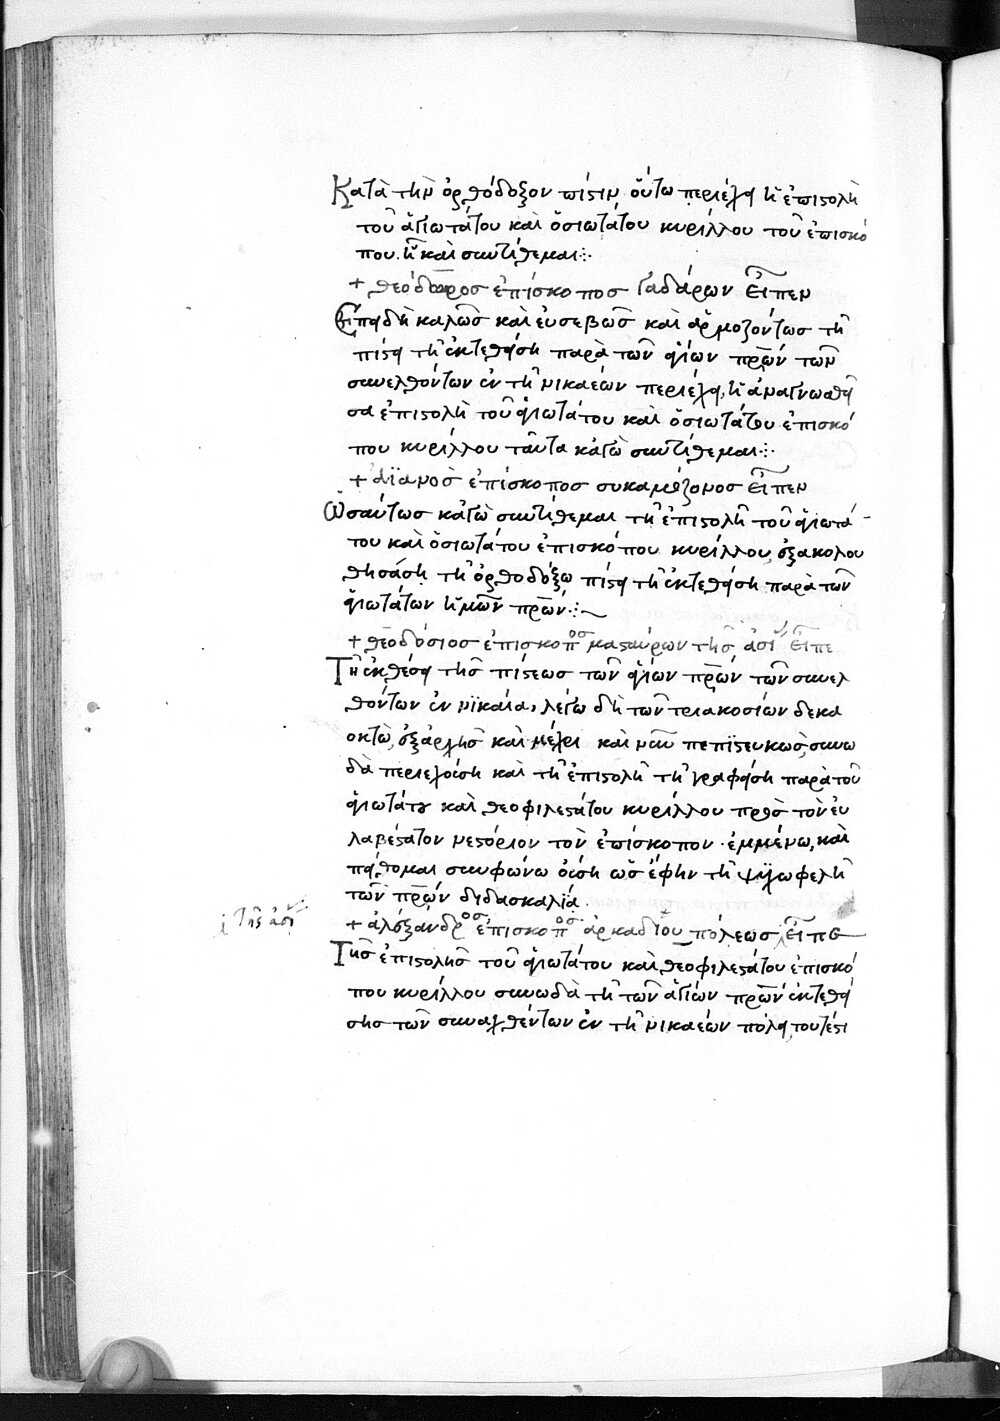 Κατὰ τὴν ὀρθόδοξον πίστιν οὕτω περιέχει ἡ ἐπιστολὴ
τοῦ ἁγιωτάτου καὶ ὁσιωτάτου κυρίλλου τοῦ ἐπισκό
που. ᾗ καὶ συντίθεμαι:
+ θεόδωρος ἐπίσκοπος Γαδάρων εἶπεν
Ἐπειδὴ καλῶς καὶ εὐσεβῶς καὶ ἁρμοζόντως τῇ
πίστει τῇ ἐκτεθείσῃ παρὰ τῶν ἁγίων πρων τῶν
συνελθόντων ἐν τῇ νικαέων περιέχει, ἡ ἀναγνωσθεῖ
σα ἐπιστολὴ τοῦ ἁγιωτάτου καὶ ὁσιωτάτου ἐπισκό
που κυρίλλου ταῦτα κἀγὼ συντίθεμαι:
+ ἀϊανὸς ἐπίσκοπος συκαμίζονος εἶπεν
Ὡσαύτως κἀγὼ συντίθεμαι τῇ ἐπιστολῇ τοῦ ἁγιωτά-
του καὶ ὁσιωτάτου ἐπισκόπου κυρίλλου, ἐξακολου
θησάσῃ τῇ ὀρθοδόξω πίστει τῇ ἐκτεθείσῃ παρὰ τῶν
ἁγιωτάτων ἡμῶν πρων:~
+ θεοδόσιος ἐπίσκοπος μασταύρων τῆς ἀσί εἶπε
Τῇ ἐκθέσει τῆς πίστεως τῶν ἁγίων πρων τῶν συνελ
θόντων ἐν νϊκαία, λέγω δὴ τῶν τριακοσίων δεκα
οκτὼ, ἐξάρχης καὶ μέχρι καὶ νῦν πεπϊστευκὼς, συνω
δὰ περιεχούση καὶ τῇ ἐπιστολῇ τῇ γραφείση παρὰ τοῦ
ἁγιωτάτου καὶ θεοφιλεστάτου κυρίλλου πρὸς τὸν εὐ
λαβέστατον νεστόριον τὸν ἐπίσκοπον. ἐμμένω, καὶ
πείθομαι συμφώνω οὔση ὡς ἔφην τῇ ψυχωφελῆ
τῶν πρων διδασκαλϊα.
+ ἀλέξανδρος ἐπίσκοπος ἀρκαδίου πόλεως εἶπε
ἰ τῆς ἀσι
Τῆς ἐπιστολῆς τοῦ ἁγιωτάτου καὶ θεοφιλεστάτου ἐπισκό
που κυρίλλου συνωδὰ τῇ τῶν ἁγίων πρων ἐκτεθεί
σης τῶν συναχθέντων ἐν τῇ νικαέων πόλει, τουτέστι